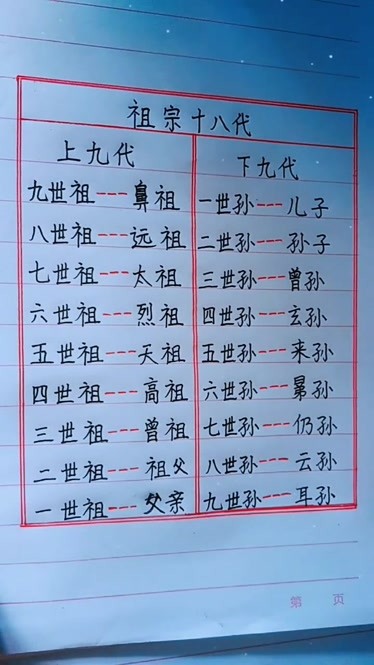 祖宗十八代
上九代 下九代
九世祖---鼻祖 一世孙---儿子
八世祖---远祖 二世孙---孙子
七世祖---太祖 三世孙---曾孙
六世祖---烈祖 四世孙---玄孙
五世祖---天祖 五世孙---来孙
四世祖---高祖 六世孙---晜孙
三世祖---曾祖 七世孙---仍孙
二世祖---祖父 八世孙---云孙
一世祖---父亲 九世孙---耳孙
第 页